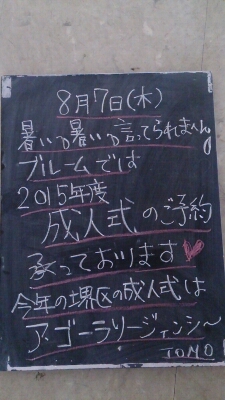 8月7日(木)
暑い暑い言ってられません
ブルームでは
2015年度
成人式のご予約
承っております
今年の堺区の成人式は
アゴーラリージェンシ〜
TOMO